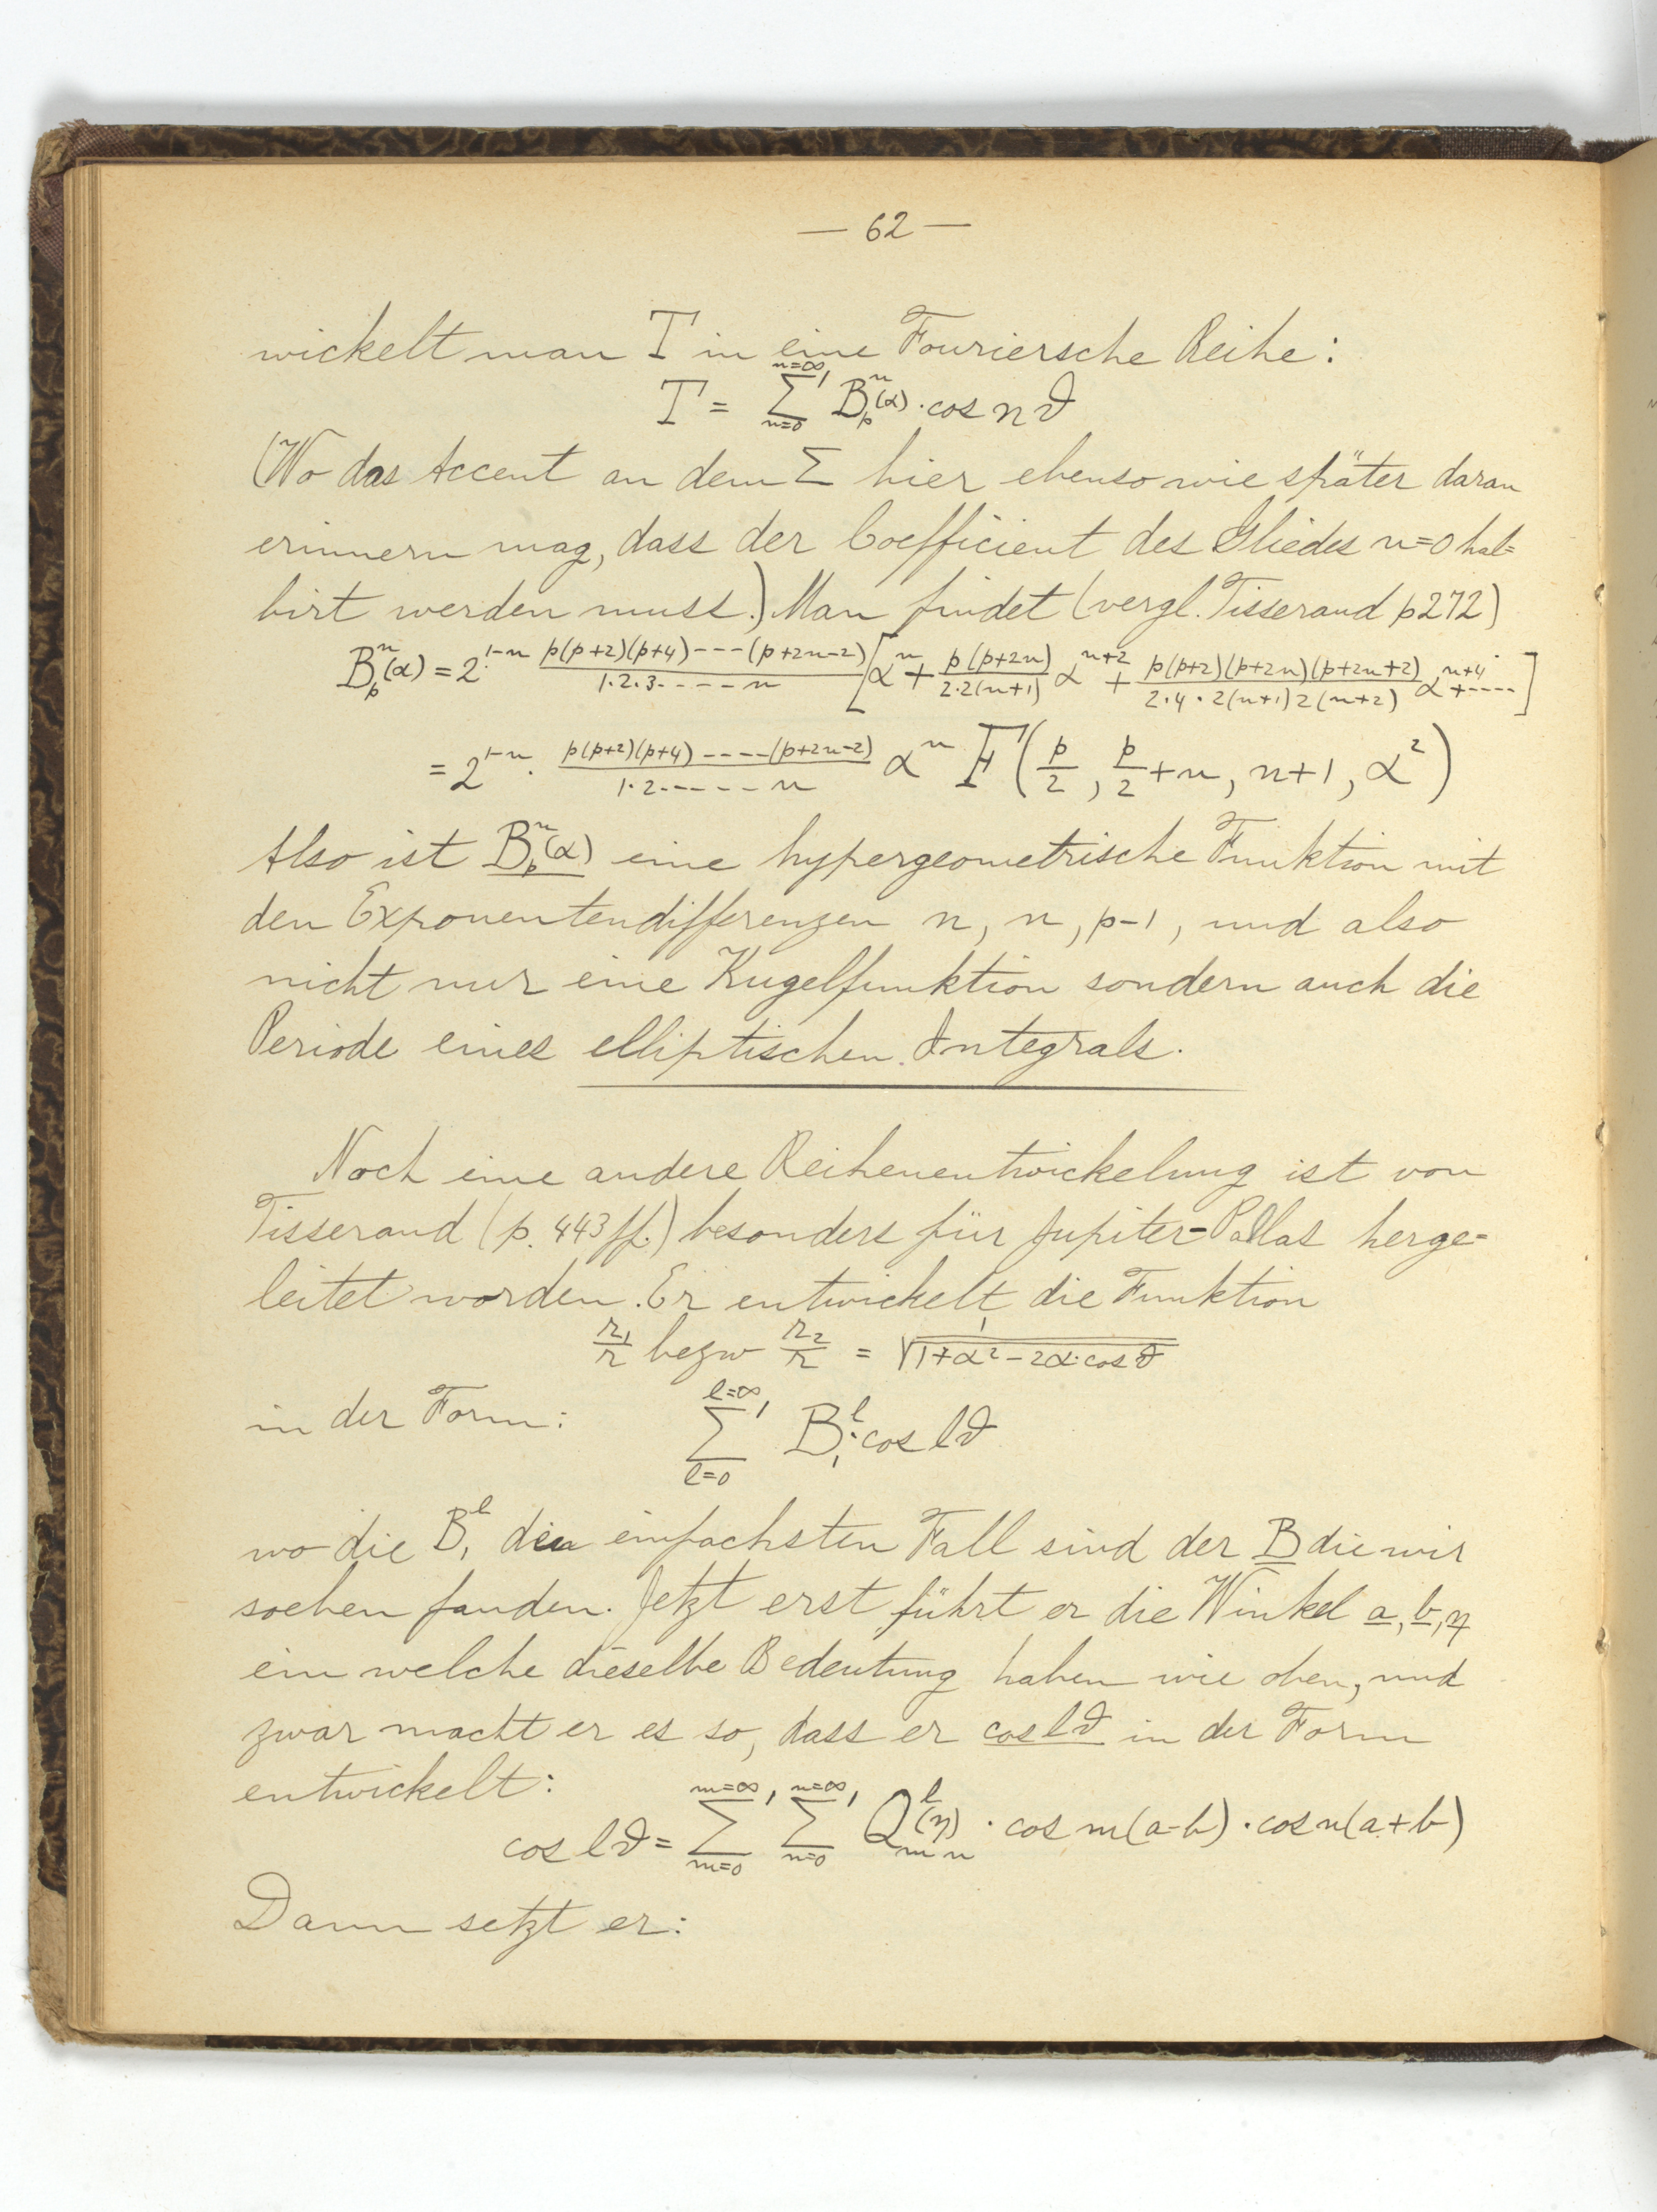 — 62 —
wickelt man T in eine Fouriersche Reihe:
T = \sum_{n=0}^{n=∞}' B_p^n(α) · cos nϑ
(Wo das Accent an dem Σ hier ebenso wie später daran
erinnern mag, dass der Coefficient des Gliedes n=0 hal=
birt werden muss.) Man findet (vergl. Tisserand p272)
B_p^n(α) = 2^{1-n} · \frac{p(p+2)(p+4)---(p+2n-2)}{1·2·3----n} [α^n + \frac{p(p+2n)}{2·2(n+1)} α^{n+2} + \frac{p(p+2)(p+2n)(p+2n+2)}{2·4·2(n+1)2(n+2)} α^{n+4} + ----]
= 2^{1-n} · \frac{p(p+2)(p+4)----(p+2n-2)}{1·2-----n} α^n F(\frac{p}{2}, \frac{p}{2}+n, n+1, α^2)
Also ist B_p^n(α) eine hypergeometrische Funktion mit
den Exponentendifferenzen n, n, p-1, und also
nicht nur eine Kugelfunktion sondern auch die
Periode eines elliptischen Integrals.
Noch eine andere Reihenentwickelung ist von
Tisserand (p. 443 ff.) besonders für Jupiter=Pallas herge=
leitet worden. Er entwickelt die Funktion
\frac{r_1}{r} bezw \frac{r_2}{r} = \frac{1}{\sqrt{1+α^2-2α·cos ϑ}}
in der Form: \sum_{l=0}^{l=∞}' B_1^l · cos lϑ
wo die B_1^l den einfachsten Fall sind der B die wir
soeben fanden. Jetzt erst führt er die Winkel a, b, η
ein welche dieselbe Bedeutung haben wie oben, und
zwar macht er es so, dass er cos lϑ in der Form
entwickelt:
cos lϑ = \sum_{m=0}^{m=∞}' \sum_{n=0}^{n=∞}' Q_{m n}^l(η) · cos m(a-b) · cos n(a+b)
Dann setzt er: